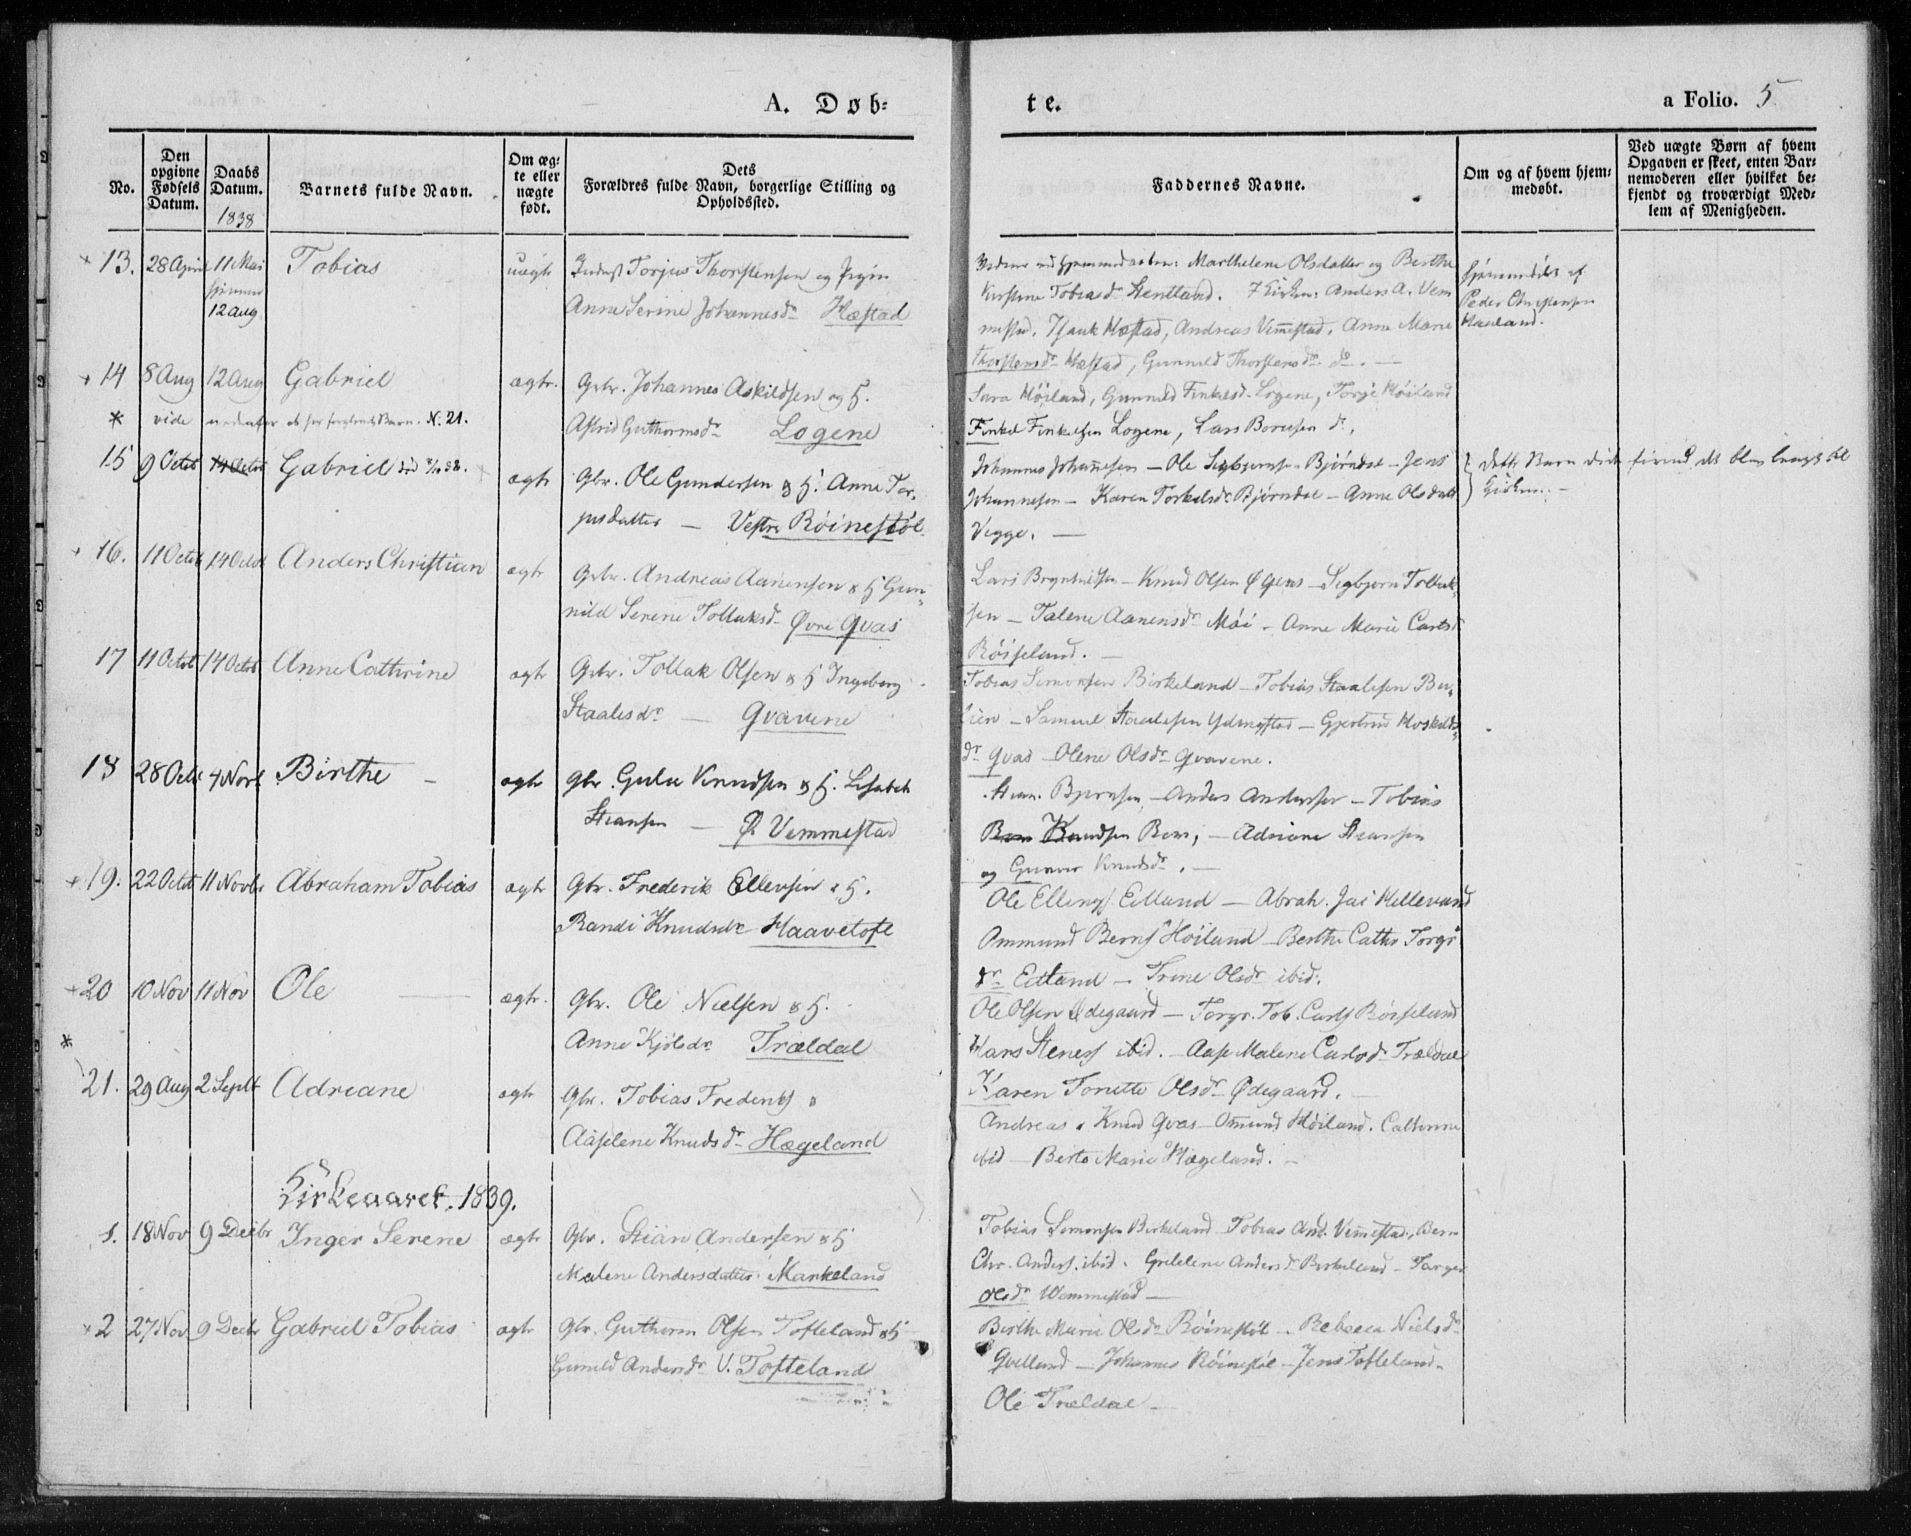 A. Døb=
te.
a Folio. 5
No.
Den opgivne Fødsels Datum.
Daabs Datum.
1838
Barnets fulde Navn.
Om æg-
te eller
uægte
født.
Dets
Forældres fulde Navn, borgerlige Stilling og
Opholdssted.
Faddernes Navne.
Om og af hvem hjem-
medøbt.
Ved uægte Børn af hvem
Opgaven er skeet, enten Bar-
nemoderen eller hvilket be-
kjendt og troværdigt Med-
lem af Menigheden.
13. 28 April 11 Mai Tobias uægte Torjus Thorstensen og Pigen
12 aug Anne Serine Johannesdr Hæstad
Marthelene Olsdatter og Berthe
Kirstine Tobiasdr Stentland. Anders A. Vem
mestad, Hæstad, Andreas Vimestad, Anne Marie
Thorstensdr Hæstad, Gunnild Thorstensdr do. —
hjemmedøbt af
Peder Christensen
Hauland.
14 8 Aug 12 Aug Gabriel ægte. Gbr. Johannes Askildsen og H.
Astrid Guthormsdr Logene
* vide nedenfor Barn. N. 21.
Sara Høiland, Gunnild Finkelsd. Logene, Torge Høiland
Finkel Finkelsen Logene, Lars Bornsen do.
15 9 Octob 14 Octob Gabriel død ægte Gbr. Ole Gundersen & H. Anne Tor-
jusdatter — Vestre Röinestöl
Johannes Johannesen — Ole Sigbjørnsen Bjørndal — Jens
Johannesen — Karen Torkelsdr Bjørndal — Anne Olsdatt
Vegge. —
dette Barn døde førend det blev bragt til
Kirken. —
16. 11 Octob 14 Octob Anders Christian ægte Gbr. Andreas Aanensen & H Gun-
nild Serene Tollaksd. Øvre Qvas
Lars Bryntsen — Knud Olsen — Sigbjørn Tollak
sen — Talene Aanensdr Møi — Anne Marie Carlsd
Röisseland. —
17 11 Octob 14 Octob Anne Cathrine ægte Gbr. Tollak Olsen & H Ingeborg
Staalesdr — Qvavene
Tobias Simonsen Birkeland — Tobias Staalesen
— Samuel Staalesen — Gjertrud
dr Qvas — Olene Olsdr Qvavene.
18 28 Octo 4 Novb Birthe — ægte Gbr. Knudsen & H. Lisabeth
Stiansen — Ø Vemmestad
Stian. Bjørnsen — Anders Andersen — Tobias
Knudsen Bern, — Adriane Stiansen
og Gunvor Knudsdr. —
19. 22 Octob 11 Novbr Abraham Tobias ægte Gbr. Frederik Ellevsen & H.
Randi Knudsdr Haavetoft
Ole Ellings. Eitland — Abrah. Hellevand
Ommund Berns Høiland — Berthe Cathr Torgr
dr Eitland — Trine Olsdr ibid.
20 10 Nov 11 Nov Ole — ægte. Gbr. Ole Nielsen & H.
Anne Kjölsdr Trældal
Ole Olsen Ødegaard — Torgr. Tob. Carls Röisseland
Hans Stenes ibid. — Aase Malene Carlsdr Trældal
Karen Tonette Olsdr Ødegaard. —
*
21. 29 Aug 2 Septb Adriane ægte Gbr. Tobias Frederiks &
Aaselene Knudsdr Hægeland
Andreas & Knud Qvas — Omund Høiland. Cathrine
ibid — Berte Marie Hægeland. —
Kirkeaaret 1839.
1. 18 Nov 9 Decbr Inger Serene ægte Gbr. Stian Andersen & H
Malene Andersdatter Markeland
Tobias Simonsen Birkeland — Tobias And. Vimestad, Bern
Chr. Anders. ibid. Andersd. Birkeland — Targer
Olsdr Wemmestad —
2 27 Nov 9 Decbr Gabriel Tobias ægte Gbr. Guthorm Olsen Tofteland & H
Gunild Andersdr V. Tofteland
Birthe Marie Olsdr Röinestöl — Rebecca Nielsdr
Qvelland — Johannes Röinestöl — Jens Tofteland —
Ole Trældal —